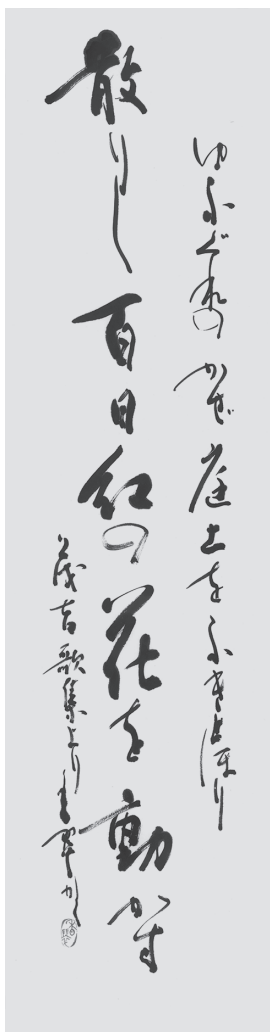 ゆふぐれのかぜ庭土をふきとほり
散りし百日紅の花を動かす
茂吉歌集より 翠かく